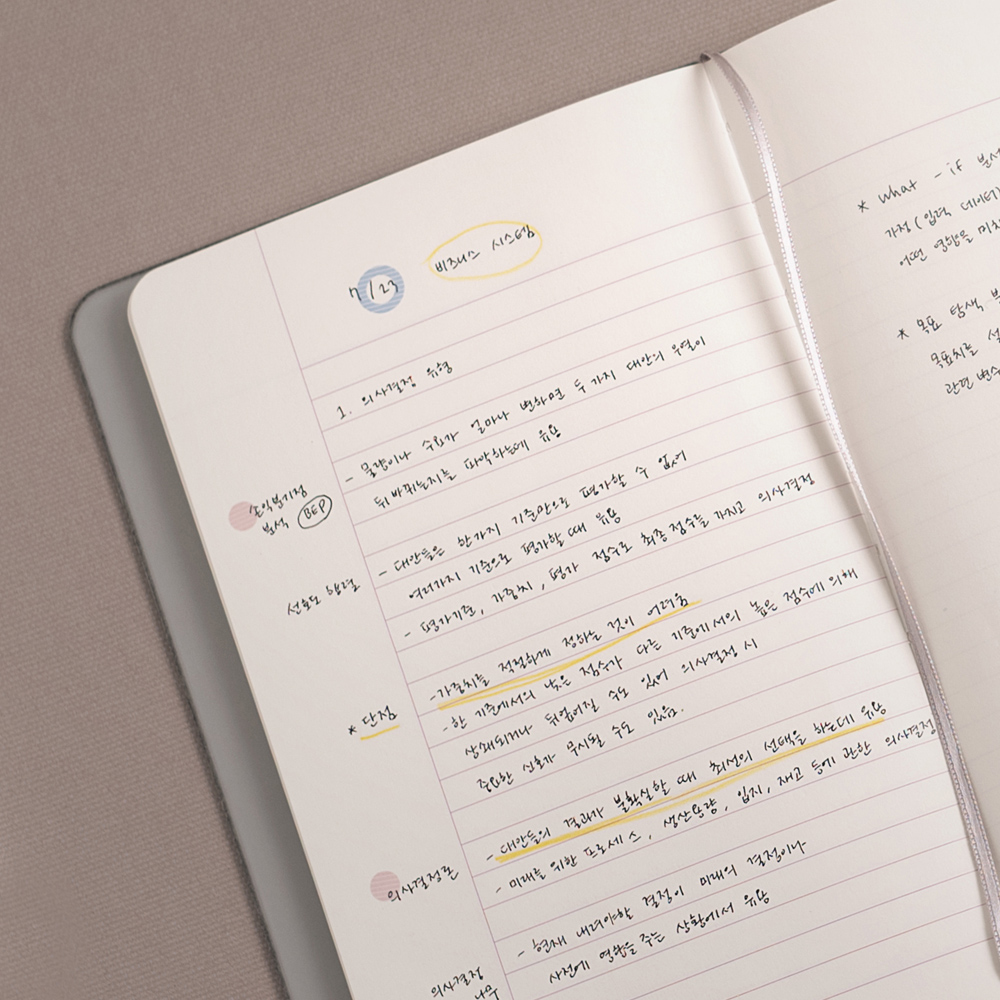 7/23 비즈니스 시스템
1. 의사결정 유형
손익분기점
분석 BEP
- 물량이나 수요가 얼마나 변하면 두 가지 대안의 우열이
뒤바뀌는지를 파악하는데 유용
선호도 행렬
- 대안들은 한가지 기준만으로 평가할 수 없어
여러가지 기준으로 평가할 때 유용
- 평가기준, 가중치, 평가 점수로 최종점수를 가지고 의사결정
* 단점
- 가중치를 적절하게 정하는 것이 어려움
- 한 기준에서의 낮은 점수가 다른 기준에서의 높은 점수에 의해
상쇄되거나 뒤엎어질 수도 있어 의사결정 시
중요한 신호가 무시될 수도 있음.
의사결정론
- 대안들의 결과가 불확실할 때 최선의 선택을 하는데 유용
- 미래를 위한 프로세스, 생산용량, 입지, 재고 등에 관한 의사결정
의사결정
나무
- 현재 내려야할 결정이 미래의 결정이나
사건에 영향을 주는 상황에서 유용
* what - if 분석
가정(입력 데이터)
어떤 영향을 미치
* 목표 탐색
목표치를
관련 변수